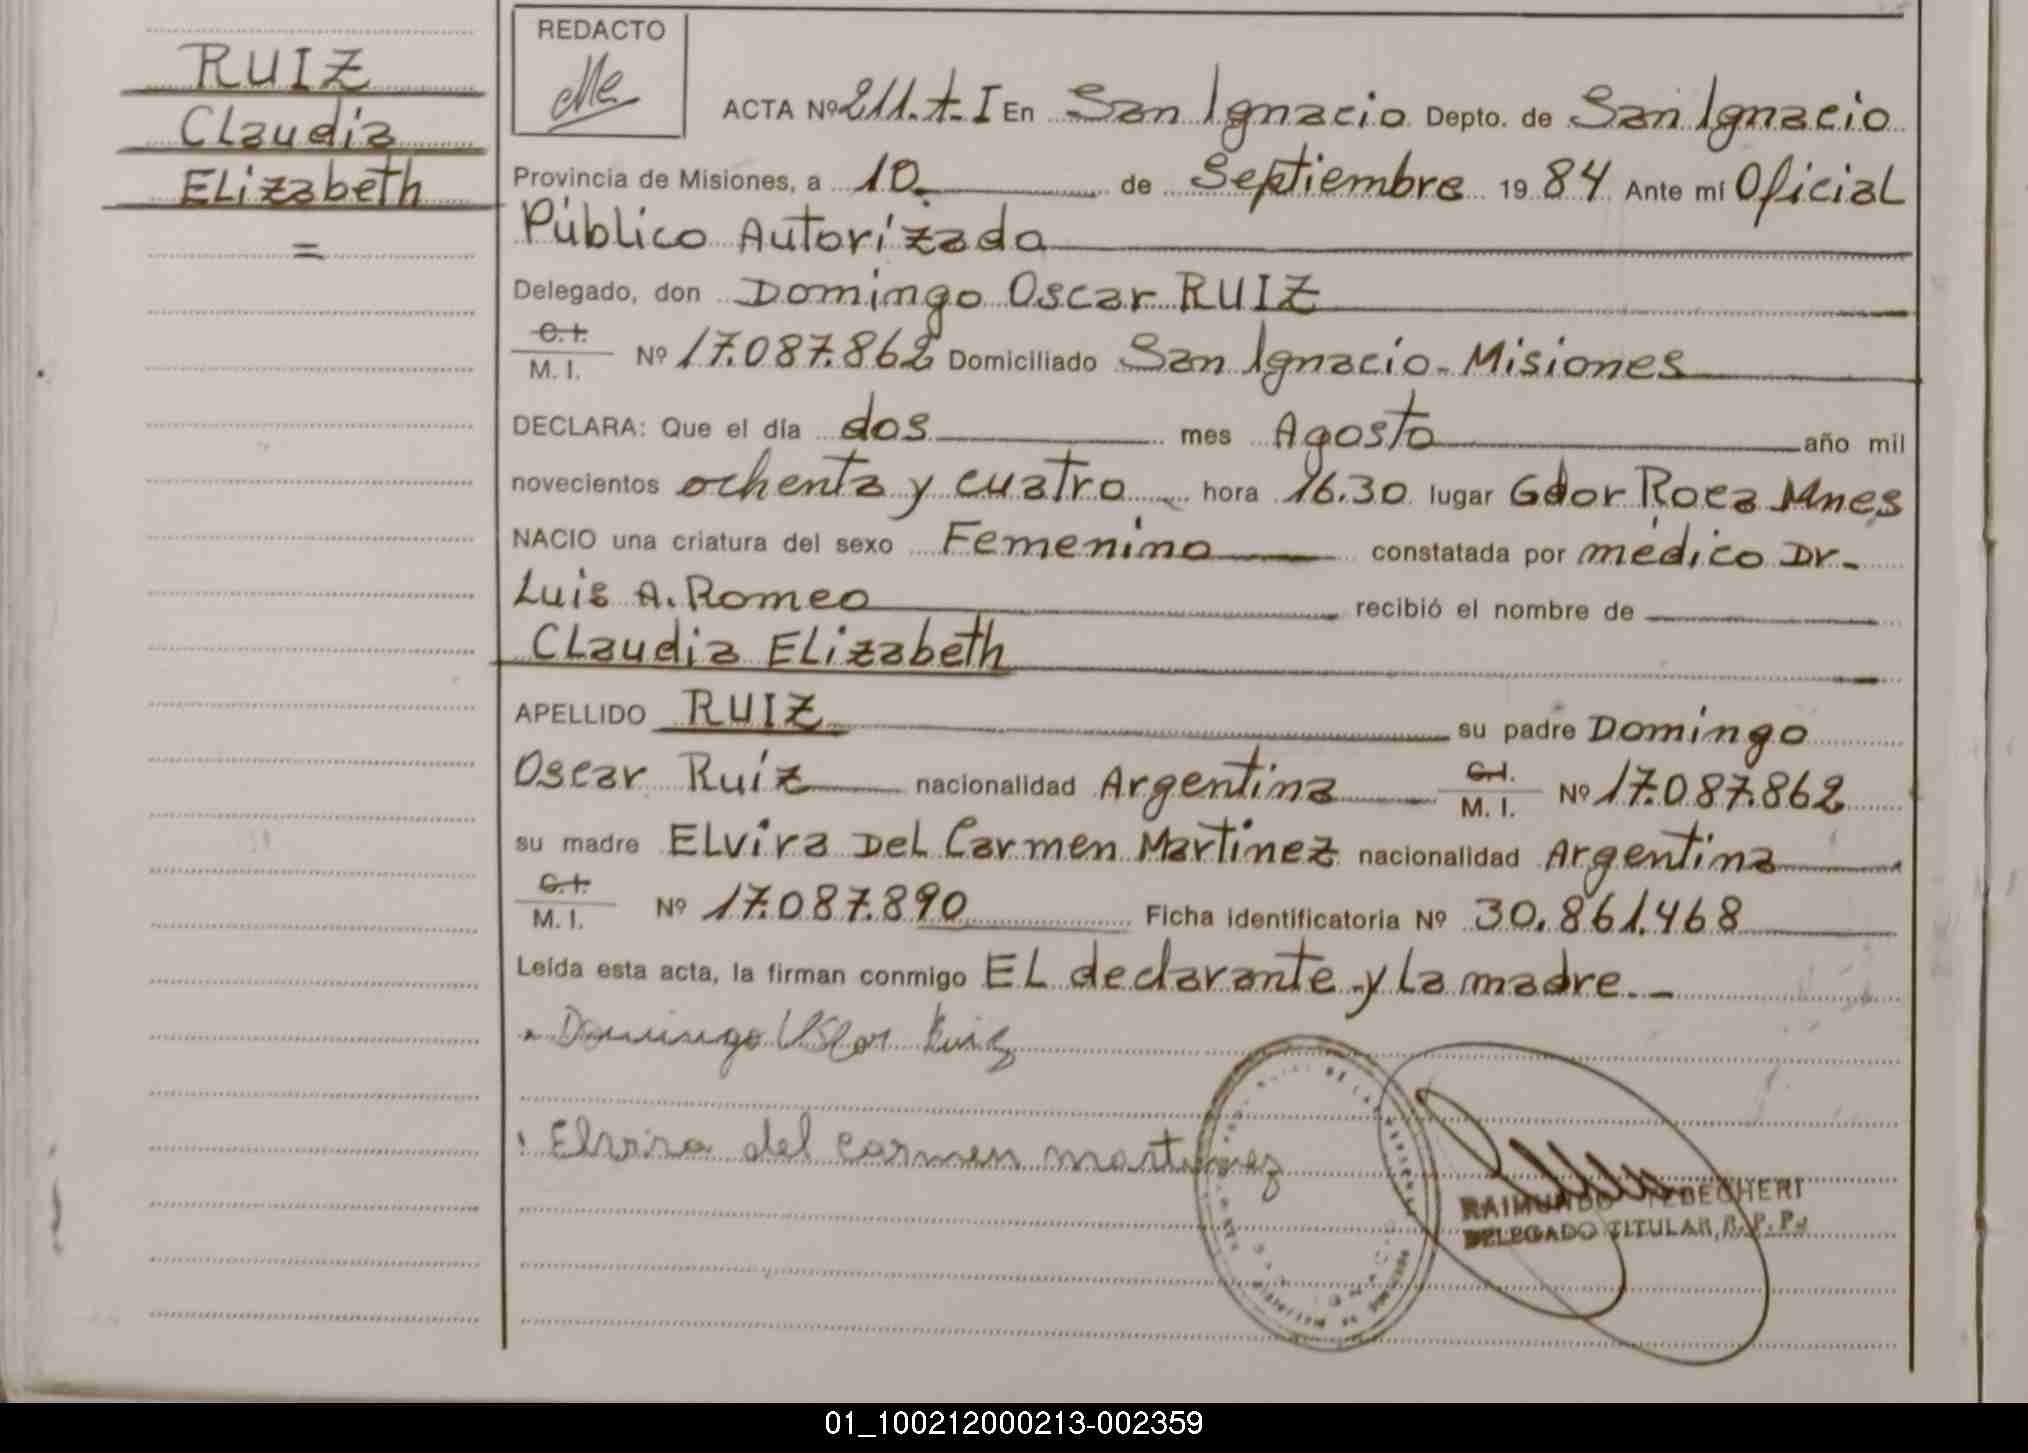 RUIZ
Claudia
Elizabeth
=
REDACTO
ACTA Nº 211.t-I En San Ignacio Depto. de San Ignacio
Provincia de Misiones, a 10 de Septiembre 1984 Ante mí Oficial
Público Autorizado
Delegado, don Domingo Oscar RUIZ
C.I.
M. I. Nº 17.087.862 Domiciliado San Ignacio-Misiones
DECLARA: Que el día dos mes Agosto año mil
novecientos ochenta y cuatro hora 16.30 lugar Gdor Roca Mnes
NACIO una criatura del sexo Femenino constatada por médico Dr.-
Luis A. Romeo recibió el nombre de
Claudia Elizabeth
APELLIDO RUIZ su padre Domingo
Oscar Ruíz nacionalidad Argentina C.I. M. I. Nº 17.087.862
su madre Elvira Del Carmen Martinez nacionalidad Argentina
C.I.
M. I. Nº 17.087.890 Ficha identificatoria Nº 30.861.468
Leída esta acta, la firman conmigo El declarante y la madre.-
Domingo Oscar Ruiz
Elvira del carmen martinez
RAIMUNDO
DELEGADO TITULAR, R.P.P.
01_100212000213-002359